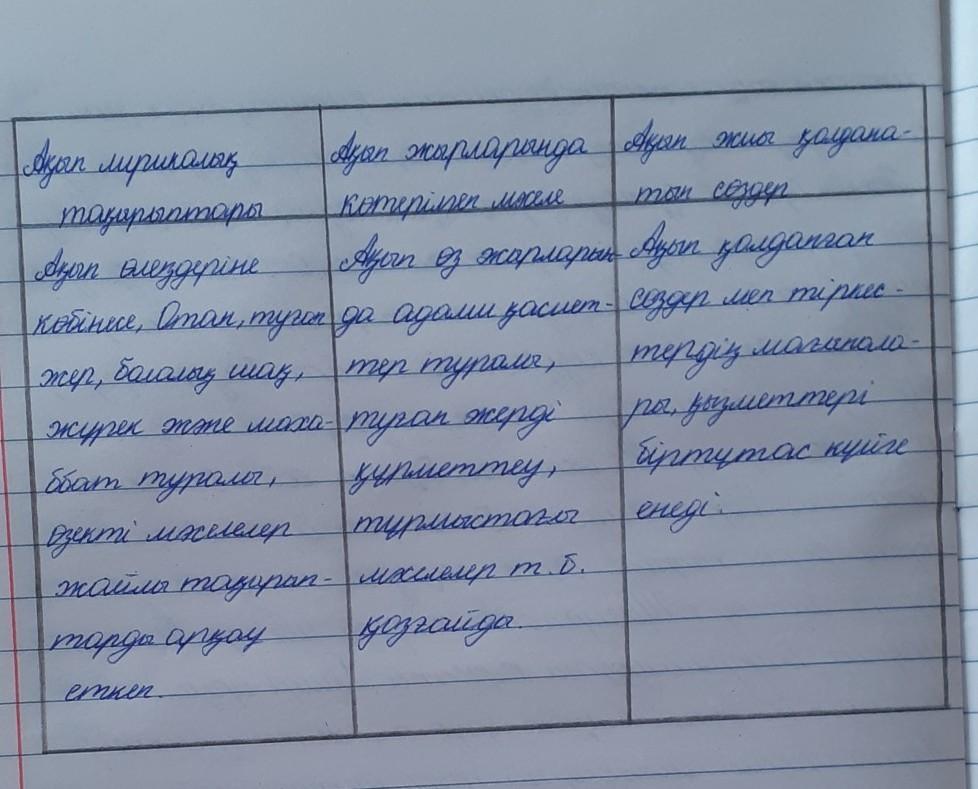 Ақын лирикалық
тақырыптары
Ақын жырларында
көтерілген мәселе
Ақын жиы қолдана-
тын сөздер
Ақын өлеңдеріне
көбінесе, Отан, туған
жер, балалық шақ,
жүрек және маха-
ббат туралы,
өзекті мәселелер
жайлы тақырап-
тарды арқау
еткен.
Ақын өз жарларын-
да адами қасиет-
тер туралы,
туған жерді
құрметтеу,
тұрмыстағы
мәселелер т.б.
қозғайды.
Ақын қолданған
сөздер мен тіркес-
тердің мағынала-
ры, қызметтері
біртұтас күйге
енеді.